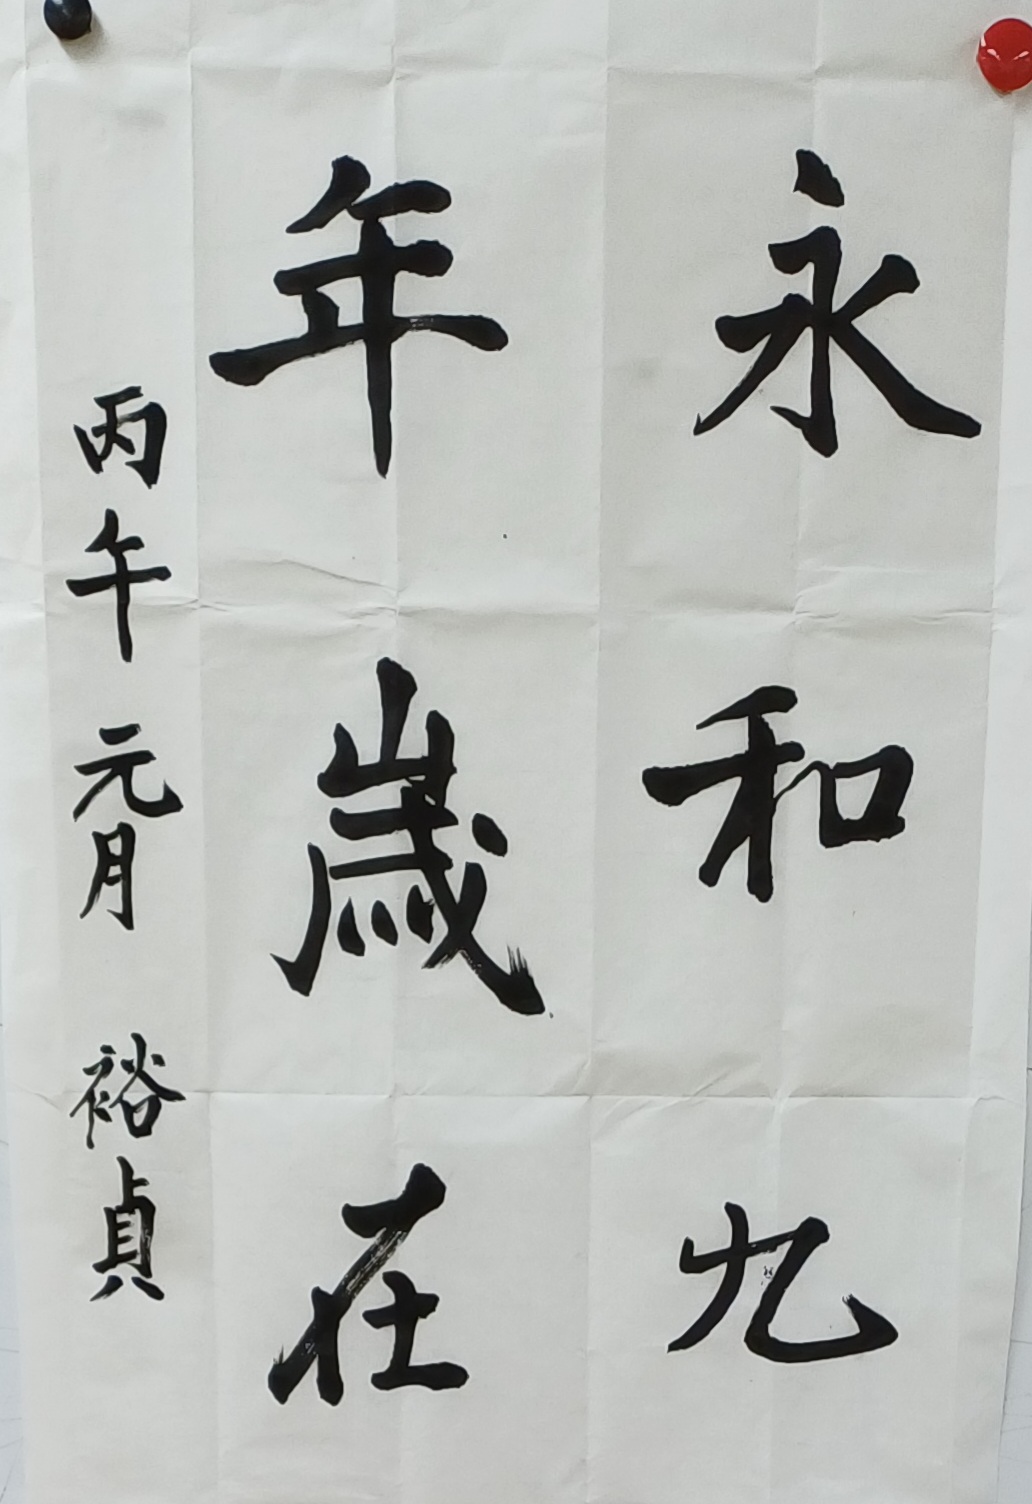 永和九
年歲在
丙午元月 裕貞